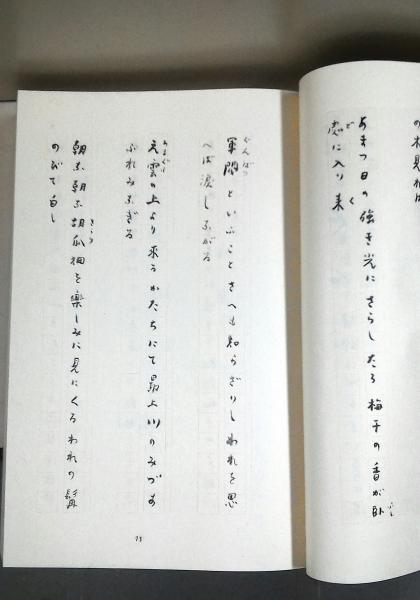 の木見れば
あまつ日の強き光にさらしたる梅干の香が臥
ふし
処に入り来
ど く
軍閥といふことさへも知らざりしわれを思
ぐんばつ
へば涙しながる
天雲の上より来るかたちにて最上川のみづあ
あまぐも
ふれみなぎる
朝な朝な胡瓜畑を楽しみに見にくるわれの髯
きうり
のびて白し
73